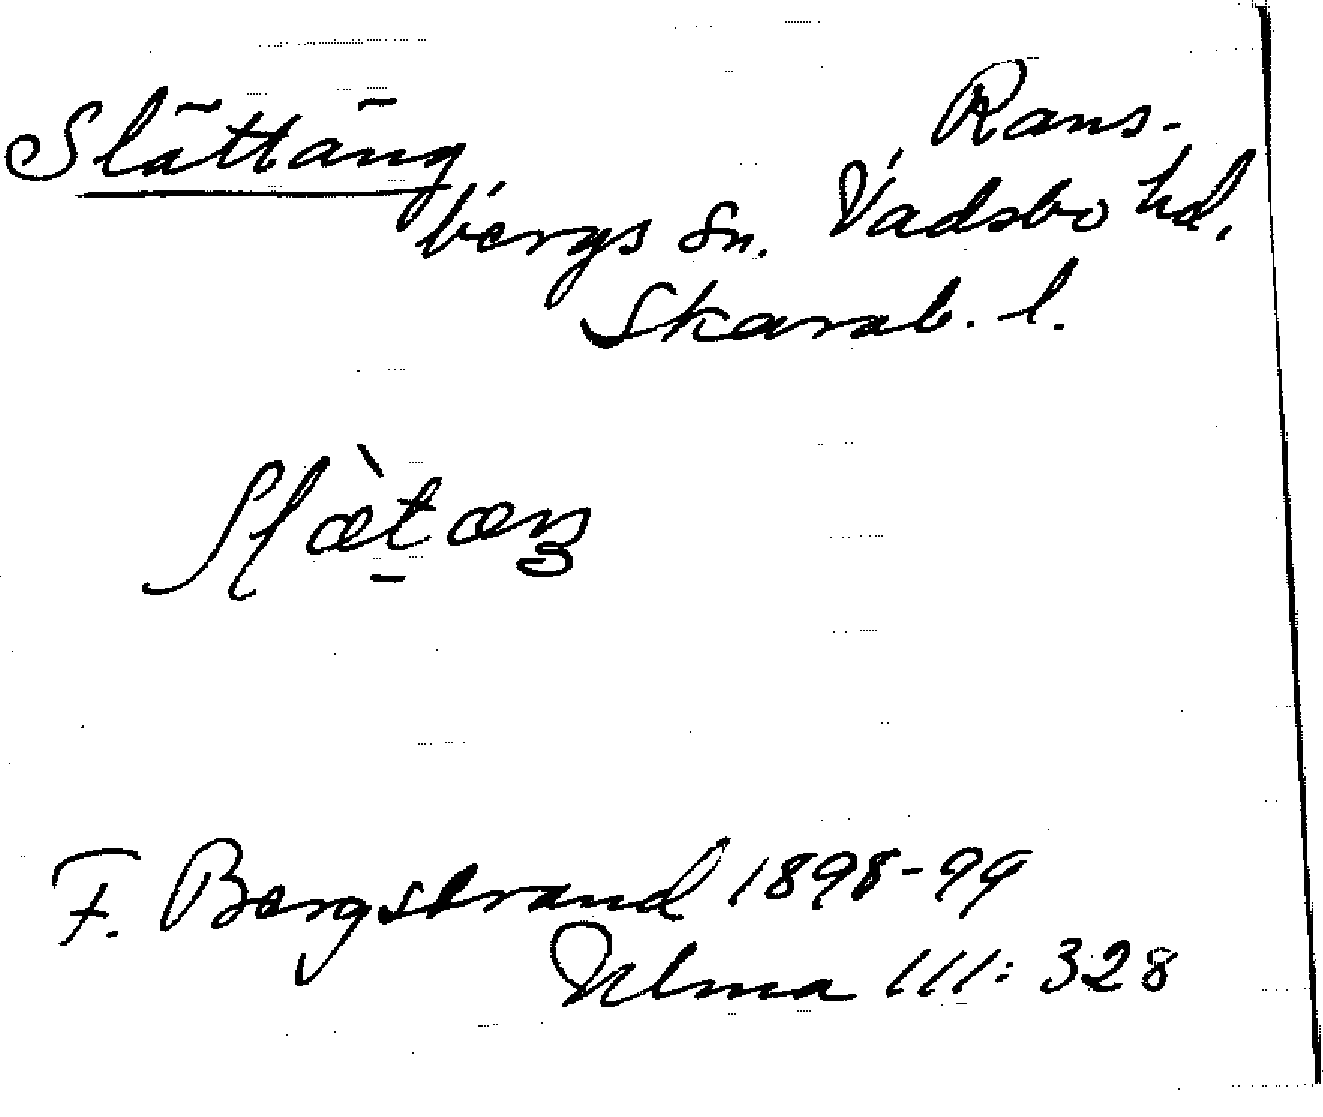 Slättäng
Rans-
bergs sn. Vadsbo hd.
Skarab. l.
F. Bergstrand 1898-99
Ulma 111: 328